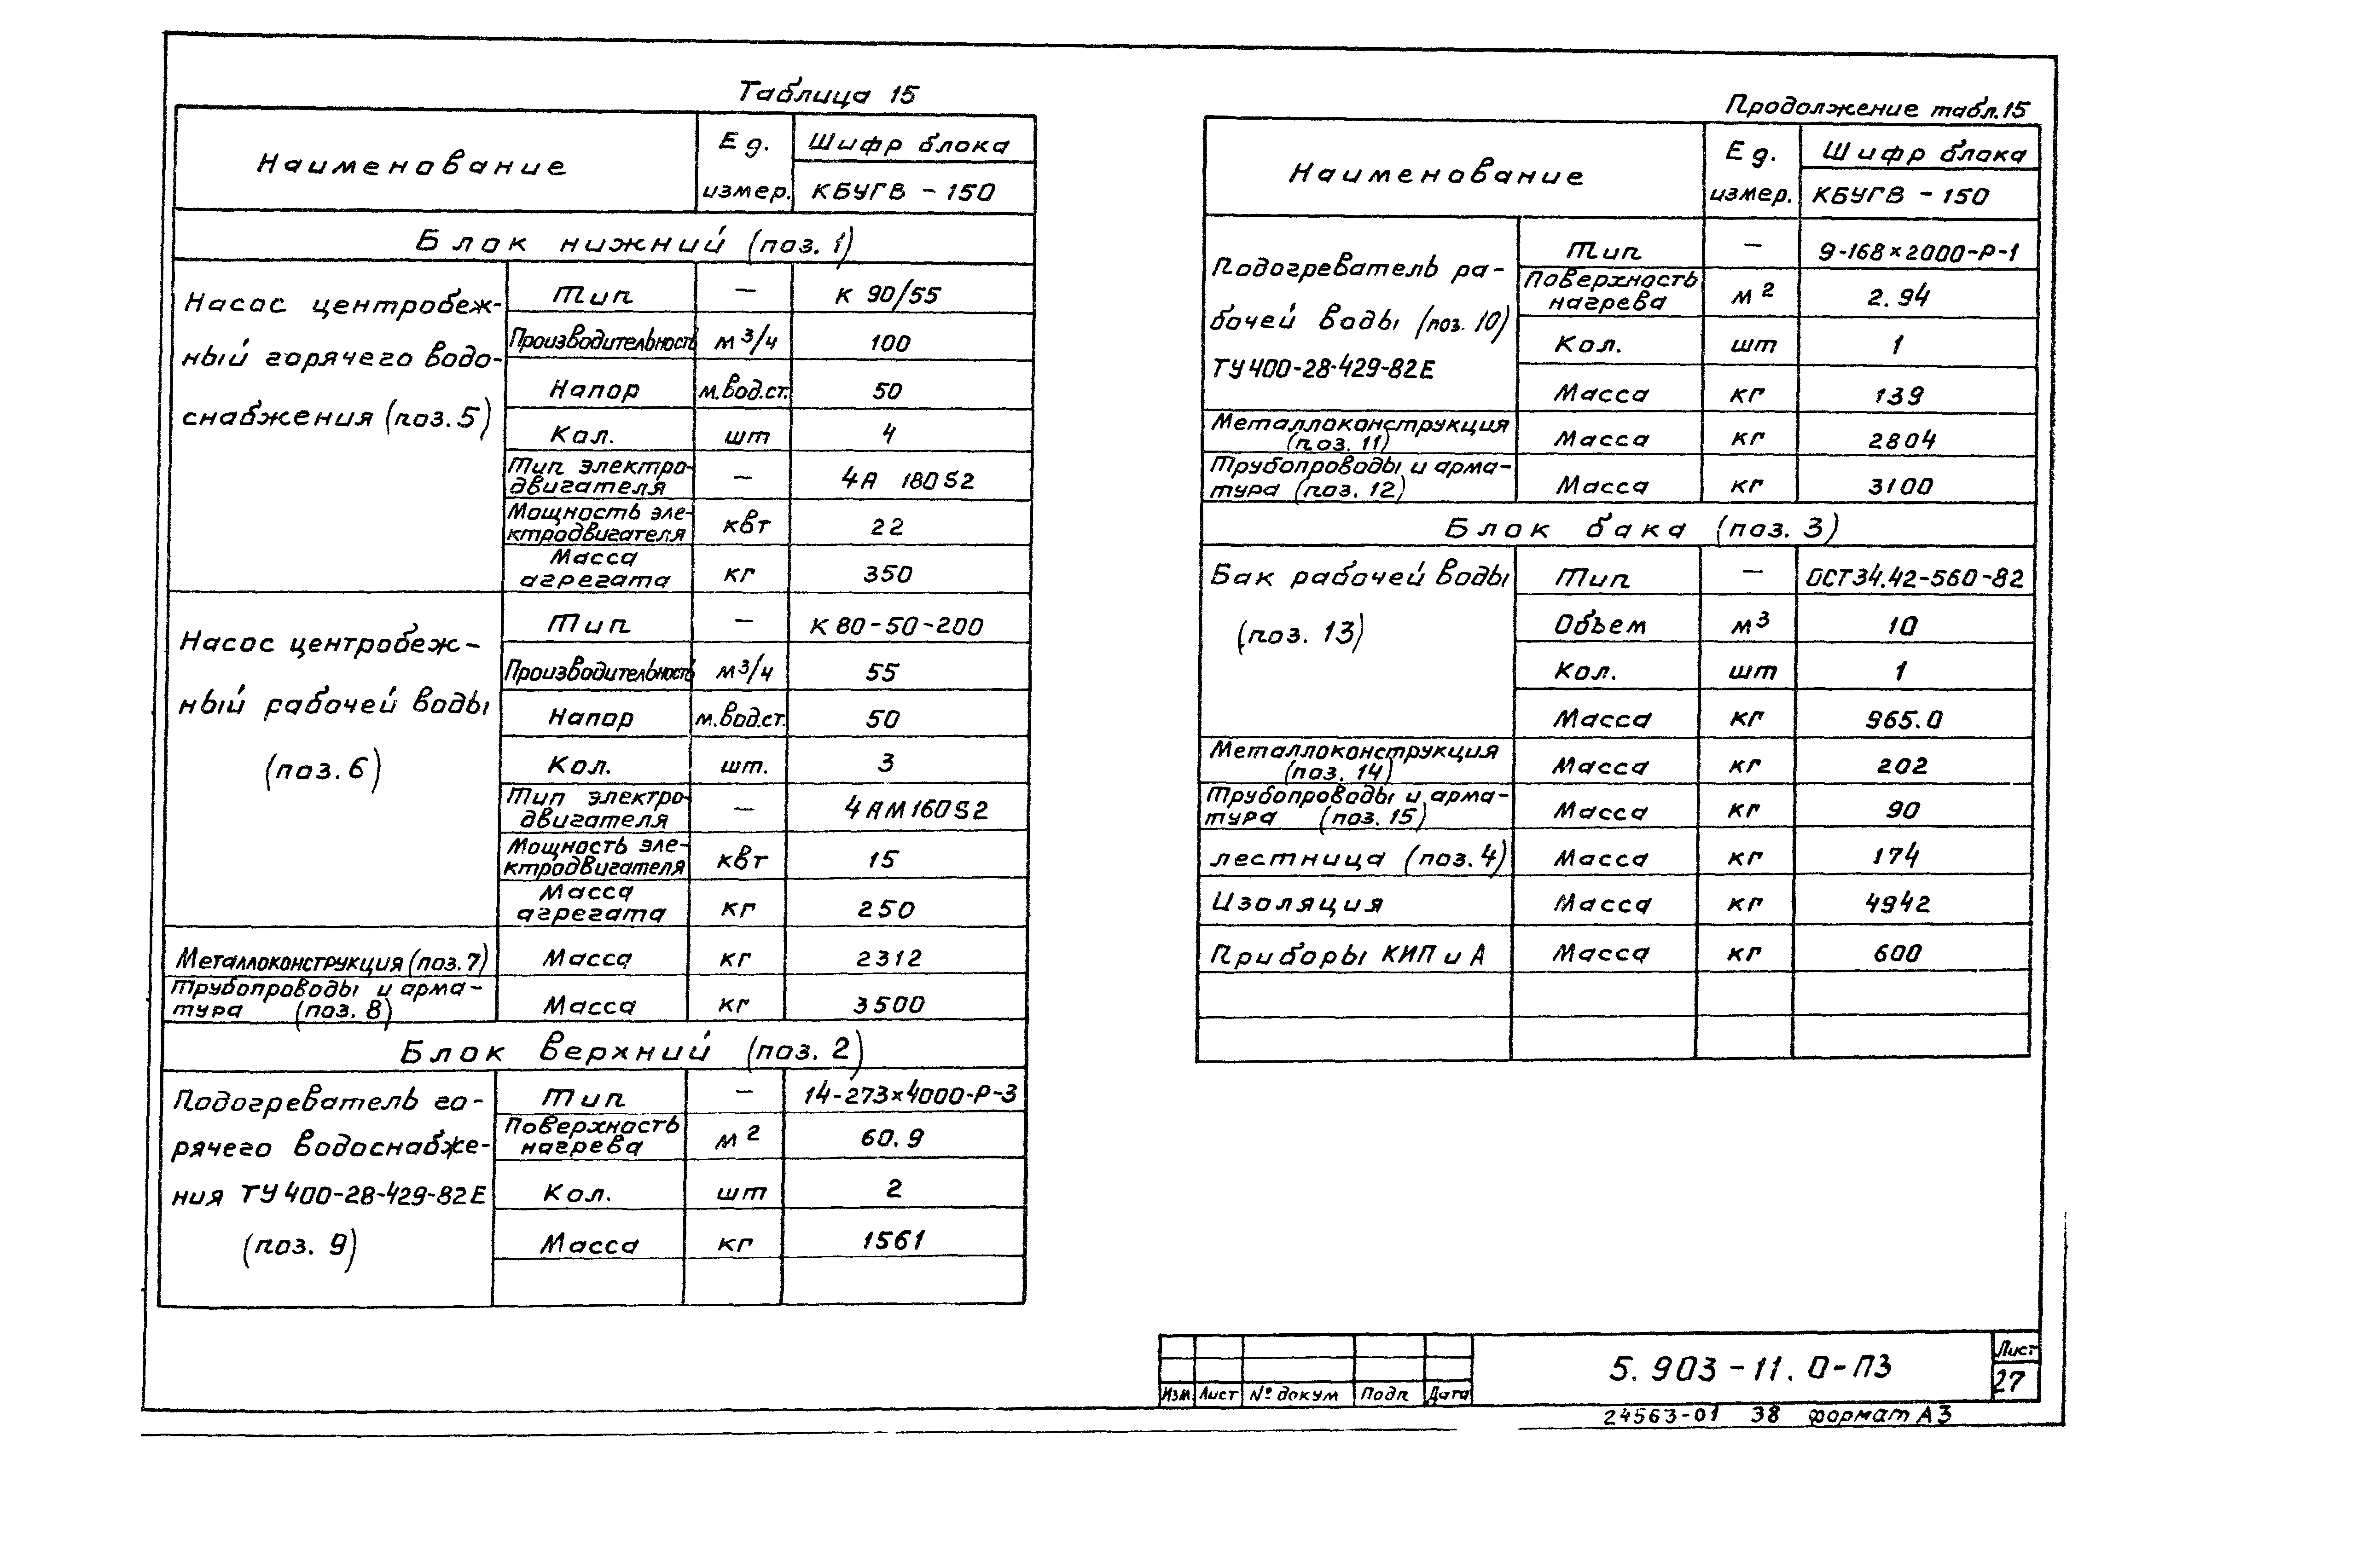 Таблица 15
Наименование
Ед. измер.
Шифр блока
КБУГВ - 150
Блок нижний (поз. 1)
Насос центробеж-
ный горячего водо-
снабжения (поз. 5)
Тип — К 90/55
Производительность м³/ч 100
Напор м.вод.ст. 50
Кол. шт 4
Тип электро-
двигателя — 4А 180S2
Мощность эле-
ктродвигателя квт 22
Масса
агрегата кг 350
Насос центробеж-
ный рабочей воды
(поз. 6)
Тип — К 80-50-200
Производительность м³/ч 55
Напор м.вод.ст. 50
Кол. шт. 3
Тип электро-
двигателя — 4АМ160S2
Мощность эле-
ктродвигателя квт 15
Масса
агрегата кг 250
Металлоконструкция (поз. 7) Масса кг 2312
Трубопроводы и арма-
тура (поз. 8) Масса кг 3500
Блок верхний (поз. 2)
Подогреватель го-
рячего водоснабже-
ния ТУ 400-28-429-82Е
(поз. 9)
Тип — 14-273×4000-Р-3
Поверхность
нагрева м² 60.9
Кол. шт 2
Масса кг 1561
Продолжение табл.15
Наименование
Ед. измер.
Шифр блока
КБУГВ - 150
Подогреватель ра-
бочей воды (поз. 10)
ТУ 400-28-429-82Е
Тип — 9-168×2000-Р-1
Поверхность
нагрева м² 2.94
Кол. шт 1
Масса кг 139
Металлоконструкция
(поз. 11) Масса кг 2804
Трубопроводы и арма-
тура (поз. 12) Масса кг 3100
Блок бака (поз. 3)
Бак рабочей воды
(поз. 13)
Тип — ОСТ34.42-560-82
Объем м³ 10
Кол. шт 1
Масса кг 965.0
Металлоконструкция
(поз. 14) Масса кг 202
Трубопроводы и арма-
тура (поз. 15) Масса кг 90
лестница (поз. 4) Масса кг 174
Изоляция Масса кг 4942
Приборы КИП и А Масса кг 600
Изм. Лист № докум Подп Дата
5.903-11.0-ПЗ
Лист
27
24563-01 38 формат А3